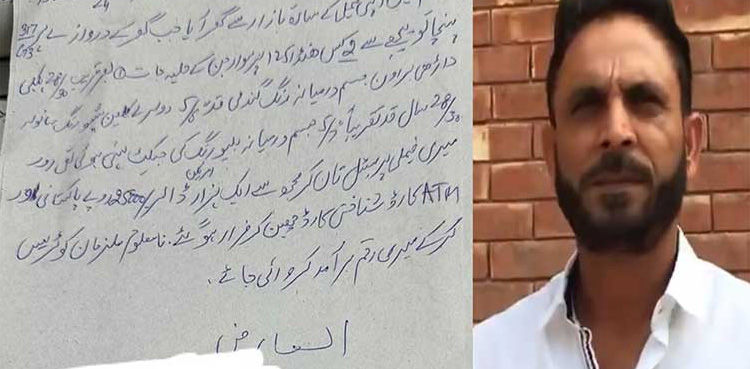 24
کے سادہ بازار سے گھر آیا جب گھر کے دروازے پر
پہنچا تو پیچھے سے کس ہنڈا 125 پر سوار جن کے حلیہ جات
داڑھی براؤن جسم درمیانہ رنگ گندمی قد 5/6 دوسرے کلین شیو رنگ سانولہ
28/30 سال قد تقریباً 5/5 جسم درمیانہ بلیو رنگ کی جیکٹ پہنی ہوئی تھی اور
میری فیملی پر پسٹل تان کر مجھ سے ایک ہزار امریکن ڈالر /25000 روپے پاکستانی اور
ATM کارڈ شناختی کارڈ چھین کر فرار ہو گئے۔ نامعلوم ملزمان کو ٹریس
کر کے میری رقم برآمد کروائی جائے۔
العارض